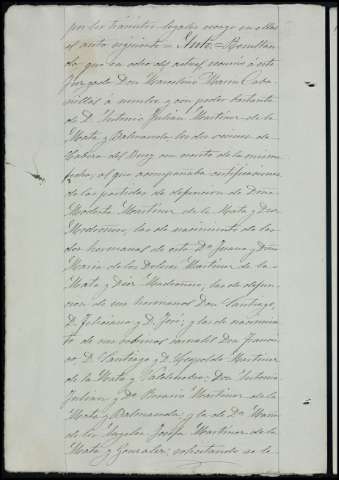 por los trámites legales recayó en ellos
el auto siguiente = Auto = Resultan-
do que en ocho del actual acudió á este
Juzgado Don Marcelino María Caba-
nillas á nombre y con poder bastante
de D. Antonio Julian Martinez de la
Mata y Balmaseda los dos vecinos de
del Buey con escrito de la misma
fecha, al que acompañaba certificaciones
de las partidas de defuncion de Doña
Modesta Martinez de la Mata y Diaz
Madroñero, las de nacimiento de los
dos hermanas de esta Dª Juana y Doña
Maria de los Dolores Martinez de la
Mata y Diaz Madroñero; las de defun-
cion de sus hermanos Don Santiago,
D. Feliciano y D. José, y las de nacimien-
to de sus sobrinos carnales Don Francis-
co D. Santiago y D. Leopoldo Martinez
de la Mata y Don Antonio
Julian y Dª Rosario Martinez de la
Mata y Balmaseda; y la de Dª Maria
de los Angeles Josefa Martinez de la
Mata y Gonzalez; solicitando se le